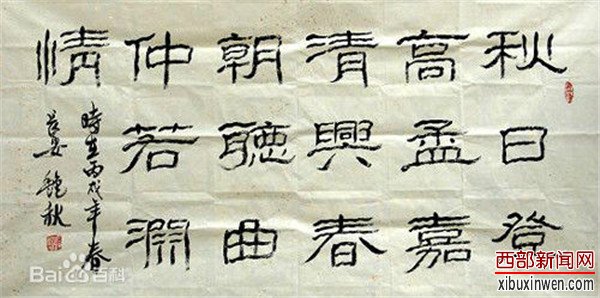 秋日登
高孟嘉
清興春
朝聽曲
仲若澗
情
時在丙戌年春
秋
Bai百科
西部新闻网
xibuxinwen.com